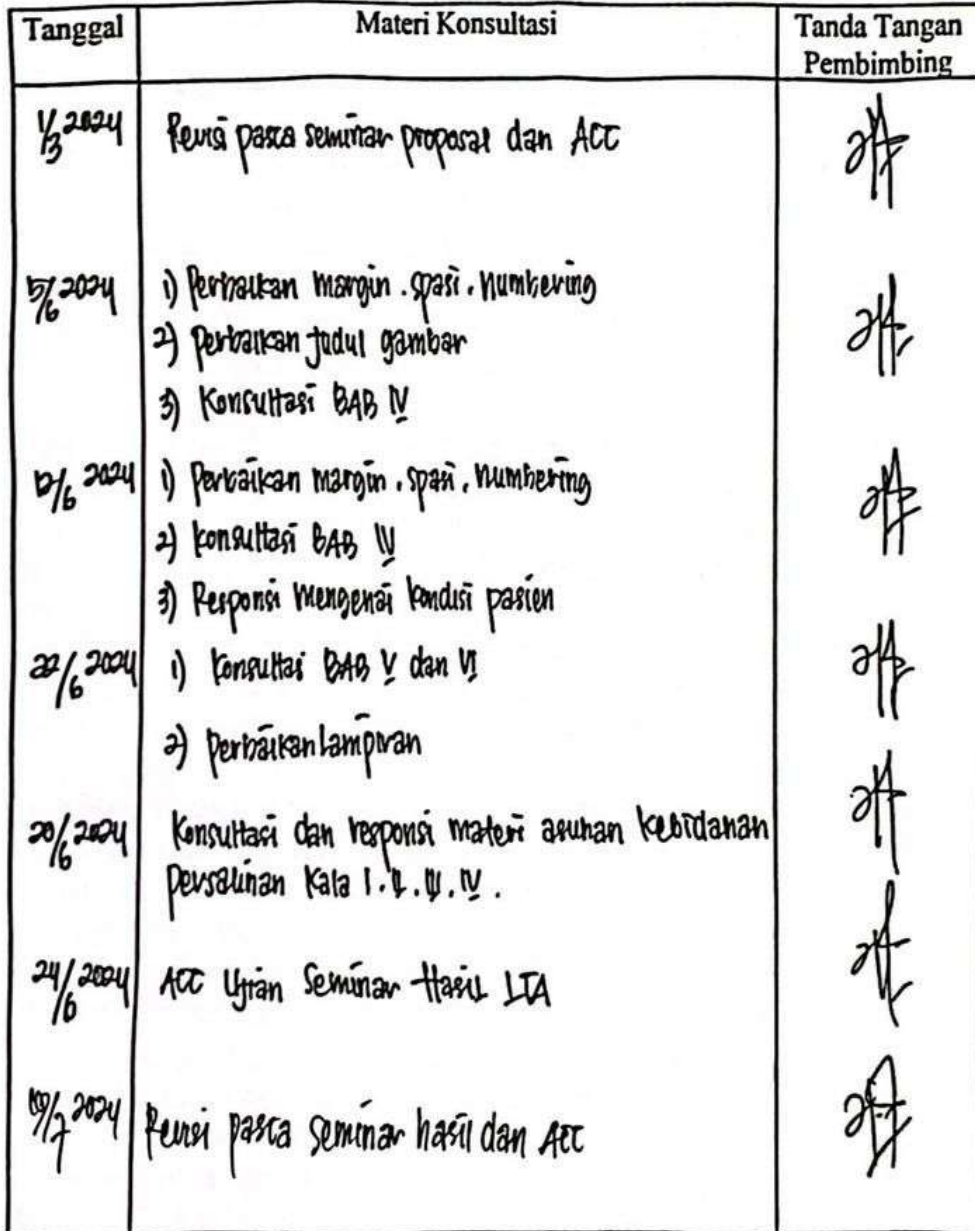 Tanggal Materi Konsultasi Tanda Tangan
Pembimbing
1/3 2024 Revisi pasca seminar proposal dan ACC
5/6 2024 1) Perbaikan margin. spasi. numbering
2) Perbaikan judul gambar
3) Konsultasi BAB IV
12/6 2024 1) Perbaikan margin. spasi. numbering
2) konsultasi BAB IV
3) Responsi mengenai kondisi pasien
22/6 2024 1) Konsultasi BAB V dan VI
2) perbaikan Lampiran
20/6 2024 Konsultasi dan responsi materi asuhan kebidanan
persalinan Kala I. II. III. IV.
24/6 2024 ACC Ujian Seminar Hasil LTA
/7 2024 Revisi pasca seminar hasil dan ACC